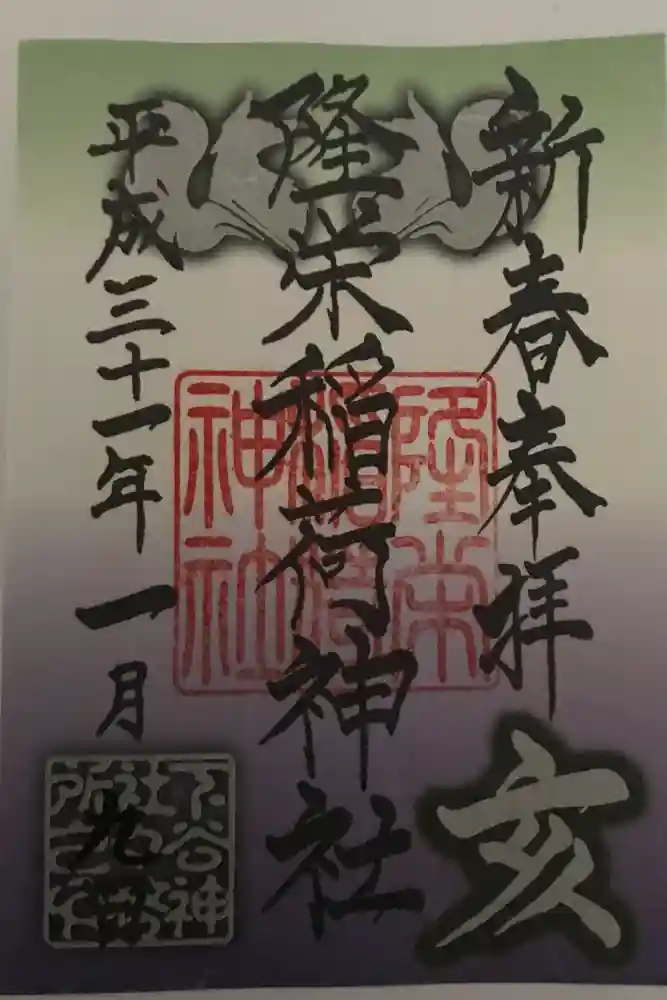 新春奉拝
亥
隆栄稲荷神社
隆栄
稲荷
神社
平成三十一年一月九日
下谷神
社社務
所之印